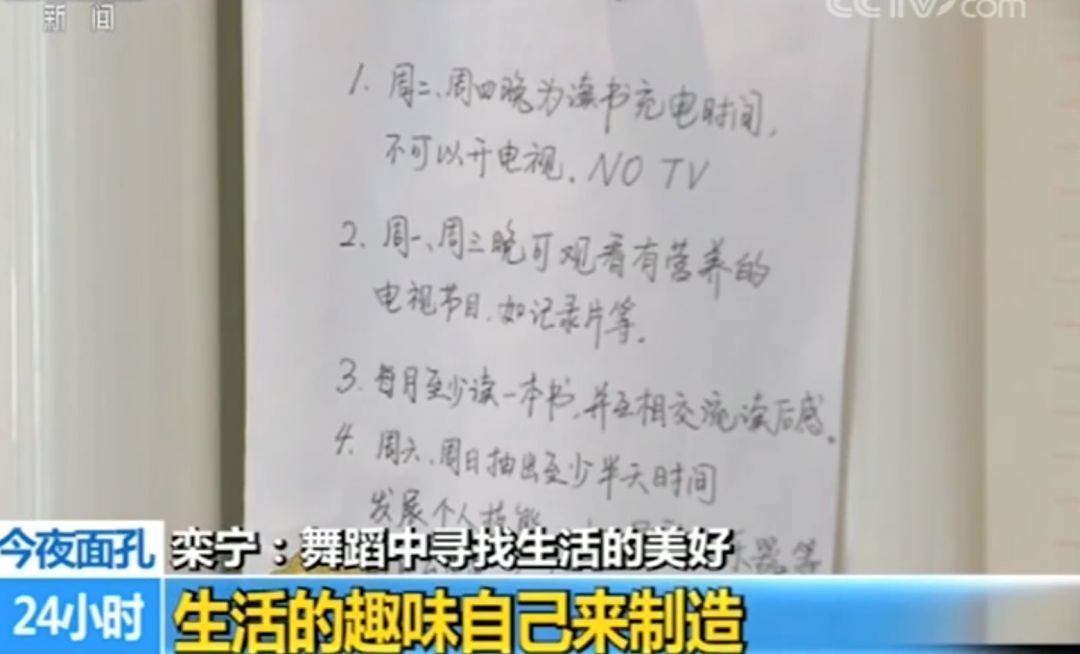 新 闻
CCTV.com
1. 周二、周四晚为读书充电时间,
不可以开电视. NO TV
2. 周一、周三晚可观看有营养的
电视节目.如记录片等.
3. 每月至少读一本书,并互相交流读后感.
4. 周六、周日抽出至少半天时间
发展个人技能
乐器等
今夜面孔
栾宁：舞蹈中寻找生活的美好
24小时
生活的趣味自己来制造